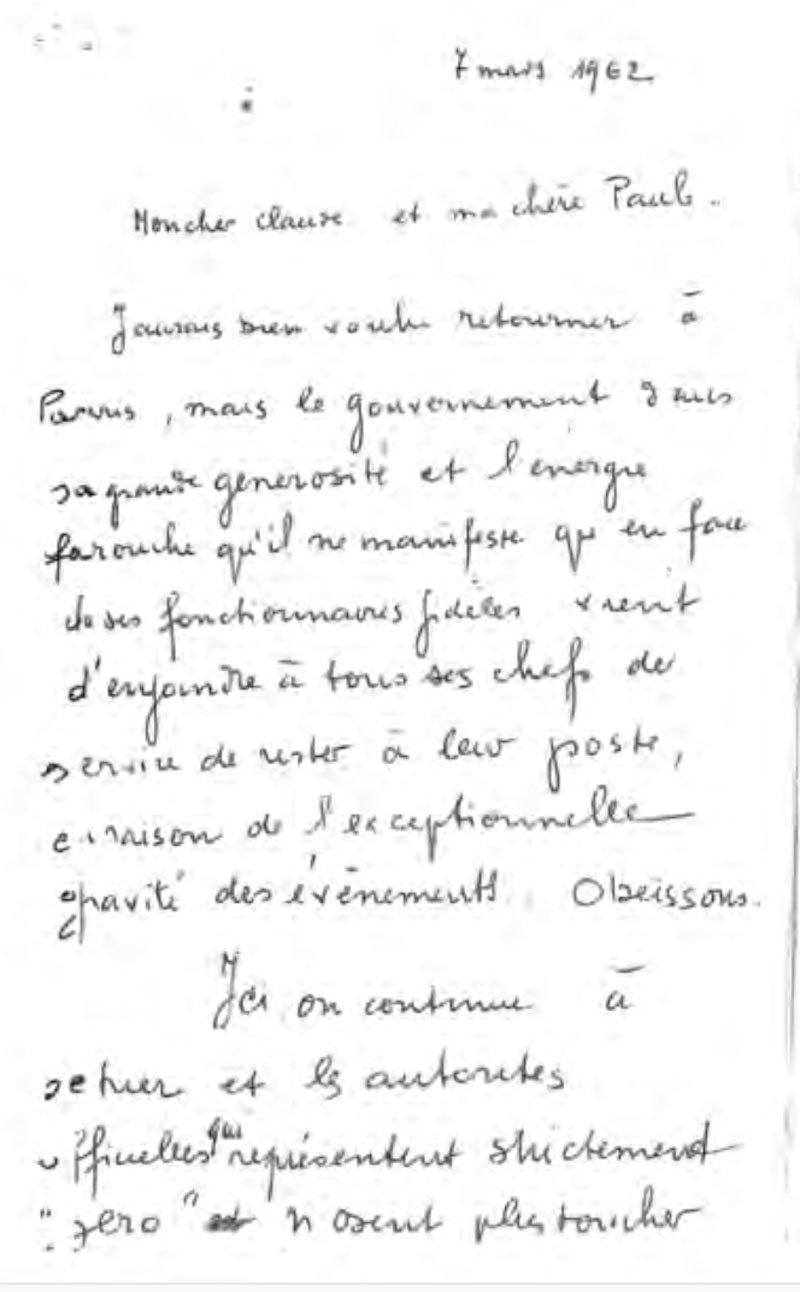 7 mars 1962
Mon cher Claude et ma chère Paule.
J'aurais bien voulu retourner à
Paris, mais le gouvernement dans
sa grande générosité et l'énergie
farouche qu'il ne manifeste que en face
de ses fonctionnaires fidèles vient
d'enjoindre à tous ses chefs de
service de rester à leur poste,
en raison de l'exceptionnelle
gravité des évènements. Obéissons.
Ici on continue à
se tuer et les autorités
officielles qui représentent strictement
"zéro" n'osent plus toucher